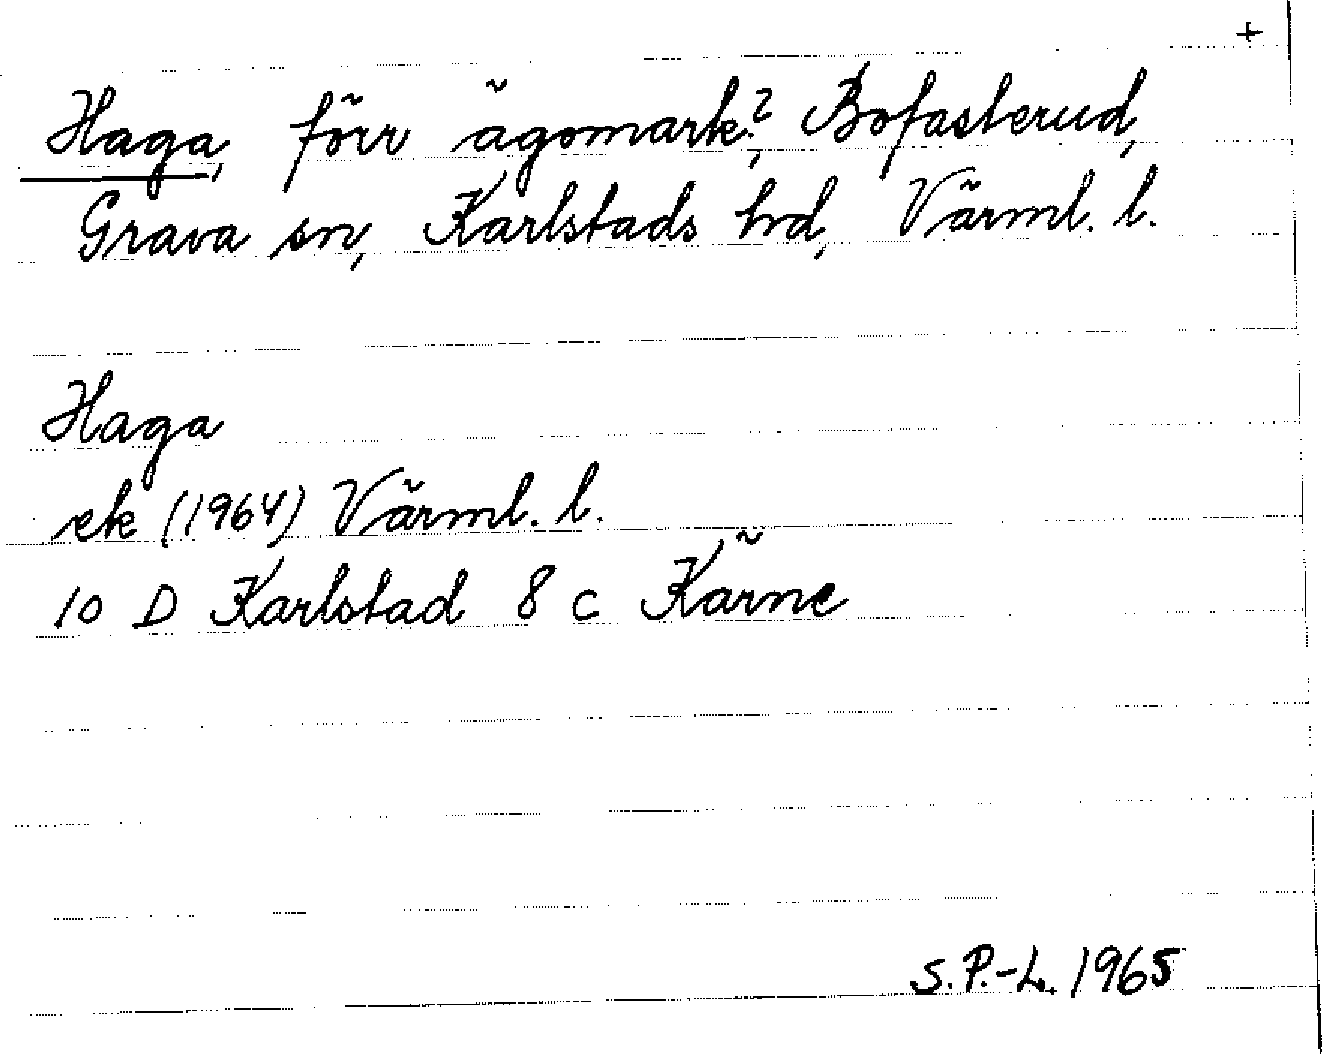 +
Haga, förr ägomark?, Bofasterud,
Grava sn, Karlstads hd, Värml. l.
Haga
ek (1964) Värml. l.
10 D Karlstad 8 c Kärne
S.P.-L. 1965